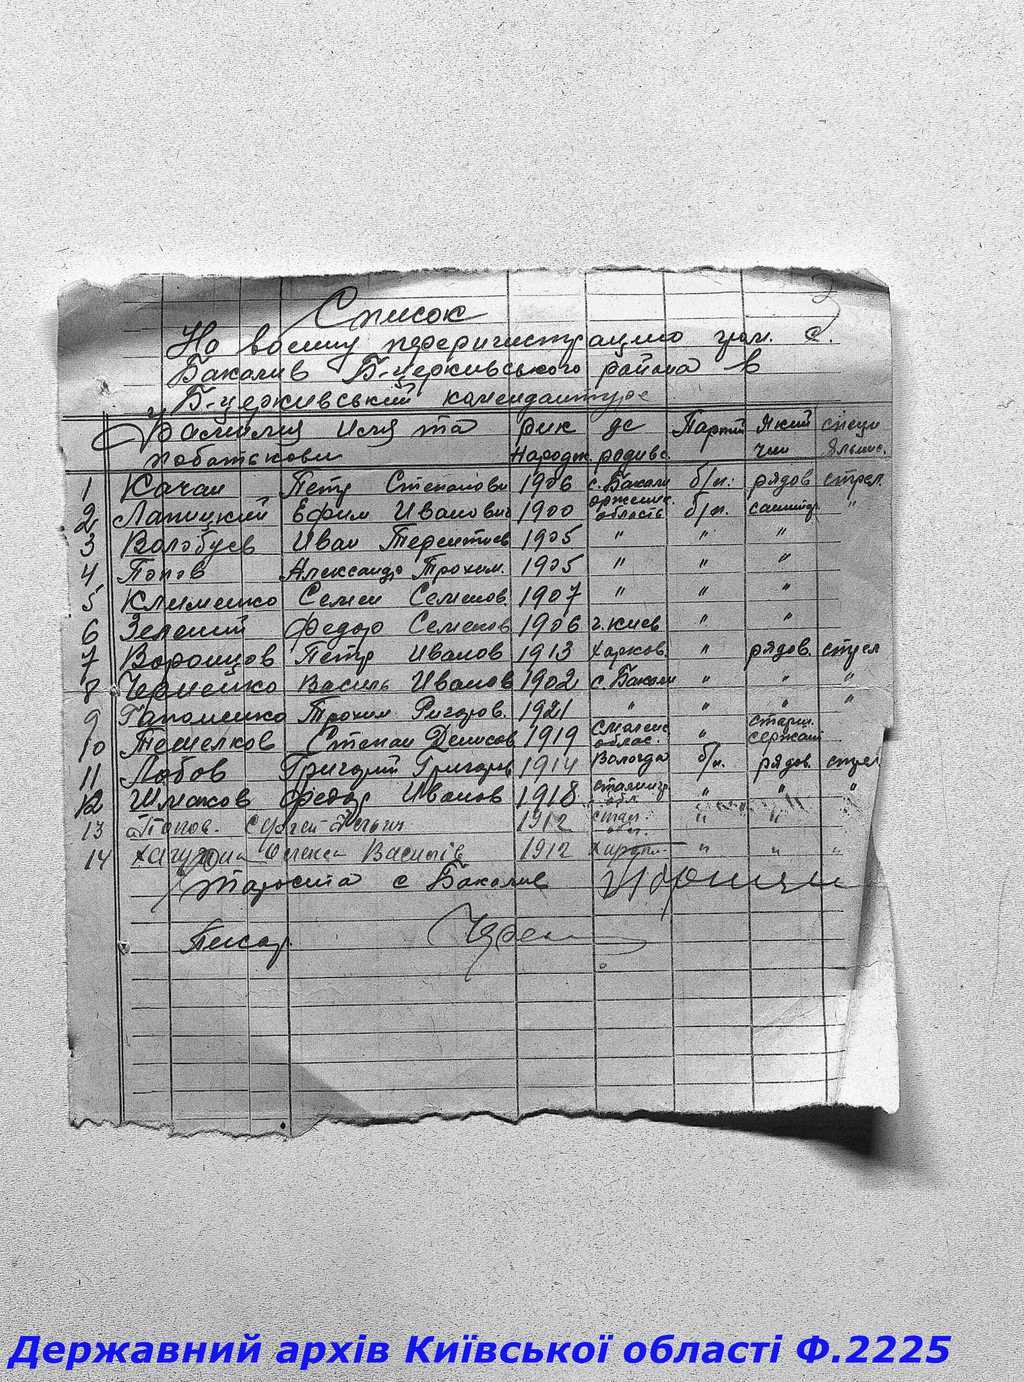 Список
На воєнну переригистрацию гром. с.
Бакалив Б-церкивського района в
Б-церкивський комендантуре
Фамилия имя та рик де Партий Який специ
побатькови Народж. родивс. чин яльнис.
1 Качан Петр Степанови 1906 с. Бакали б/п. рядов стрел
2 Лапицкий Ефим Иванович 1900 область б/п. санитар "
3 Волобуев Иван Терентиев 1905 " " "
4 Попов Александр Трохим. 1905 " " "
5 Клименко Семен Семенов. 1907 " " "
6 Зелений Федор Семенов 1906 г. киев " "
7 Воронцов Петр Иванов 1913 Харков " рядов. стрел
8 Черненко Василь Иванов 1902 с. Бакали " " "
9 Гапоненко Трохим Григоров. 1921 " " " "
10 Темелков Степан Денисов 1919 Смоленс облас. " старш. сержант
11 Лобов Григорий Григоров 1914 Вологда б/п. рядов. стрел
12 Шмаков Федор Иванов 1918 сталингр обл. " " "
13 Попов. Сергей 1912 стал. обл. " "
14 Олекса Василів 1912 " " "
Староста с Бакалив
Писар.
Державний архів Київської області Ф.2225